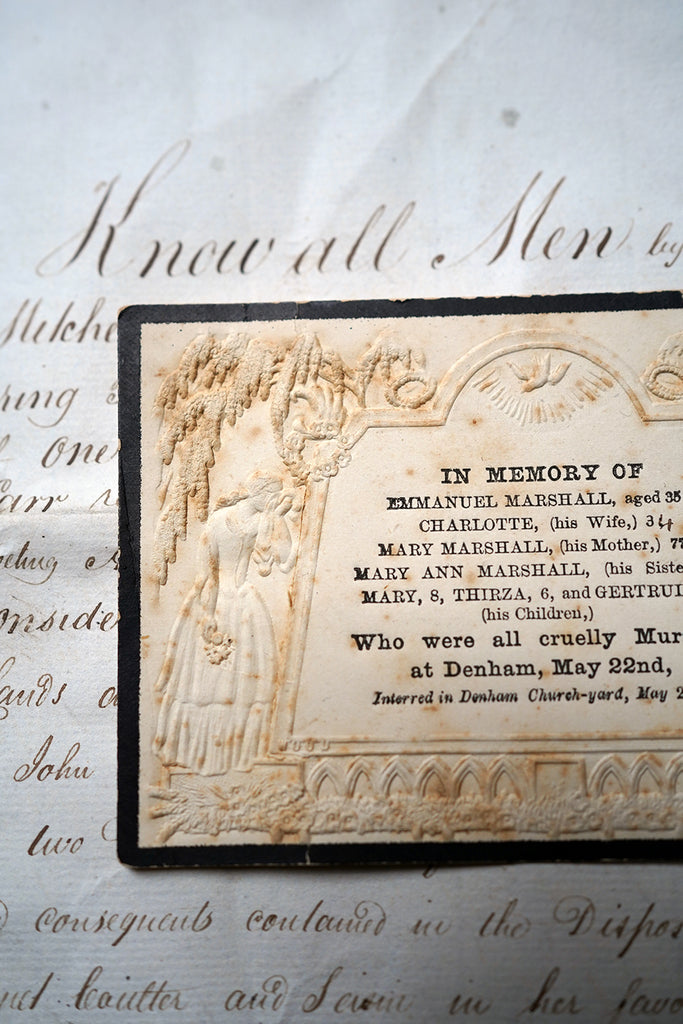 Know all Men by
IN MEMORY OF
EMMANUEL MARSHALL, aged 35
CHARLOTTE, (his Wife,) 34
MARY MARSHALL, (his Mother,) 77
MARY ANN MARSHALL, (his Siste
MARY, 8, THIRZA, 6, and GERTRU
(his Children,)
Who were all cruelly Mur
at Denham, May 22nd,
Interred in Denham Church-yard, May 2
One
onside
ands
John
two
consequents contained in the Dispos
and in her favo